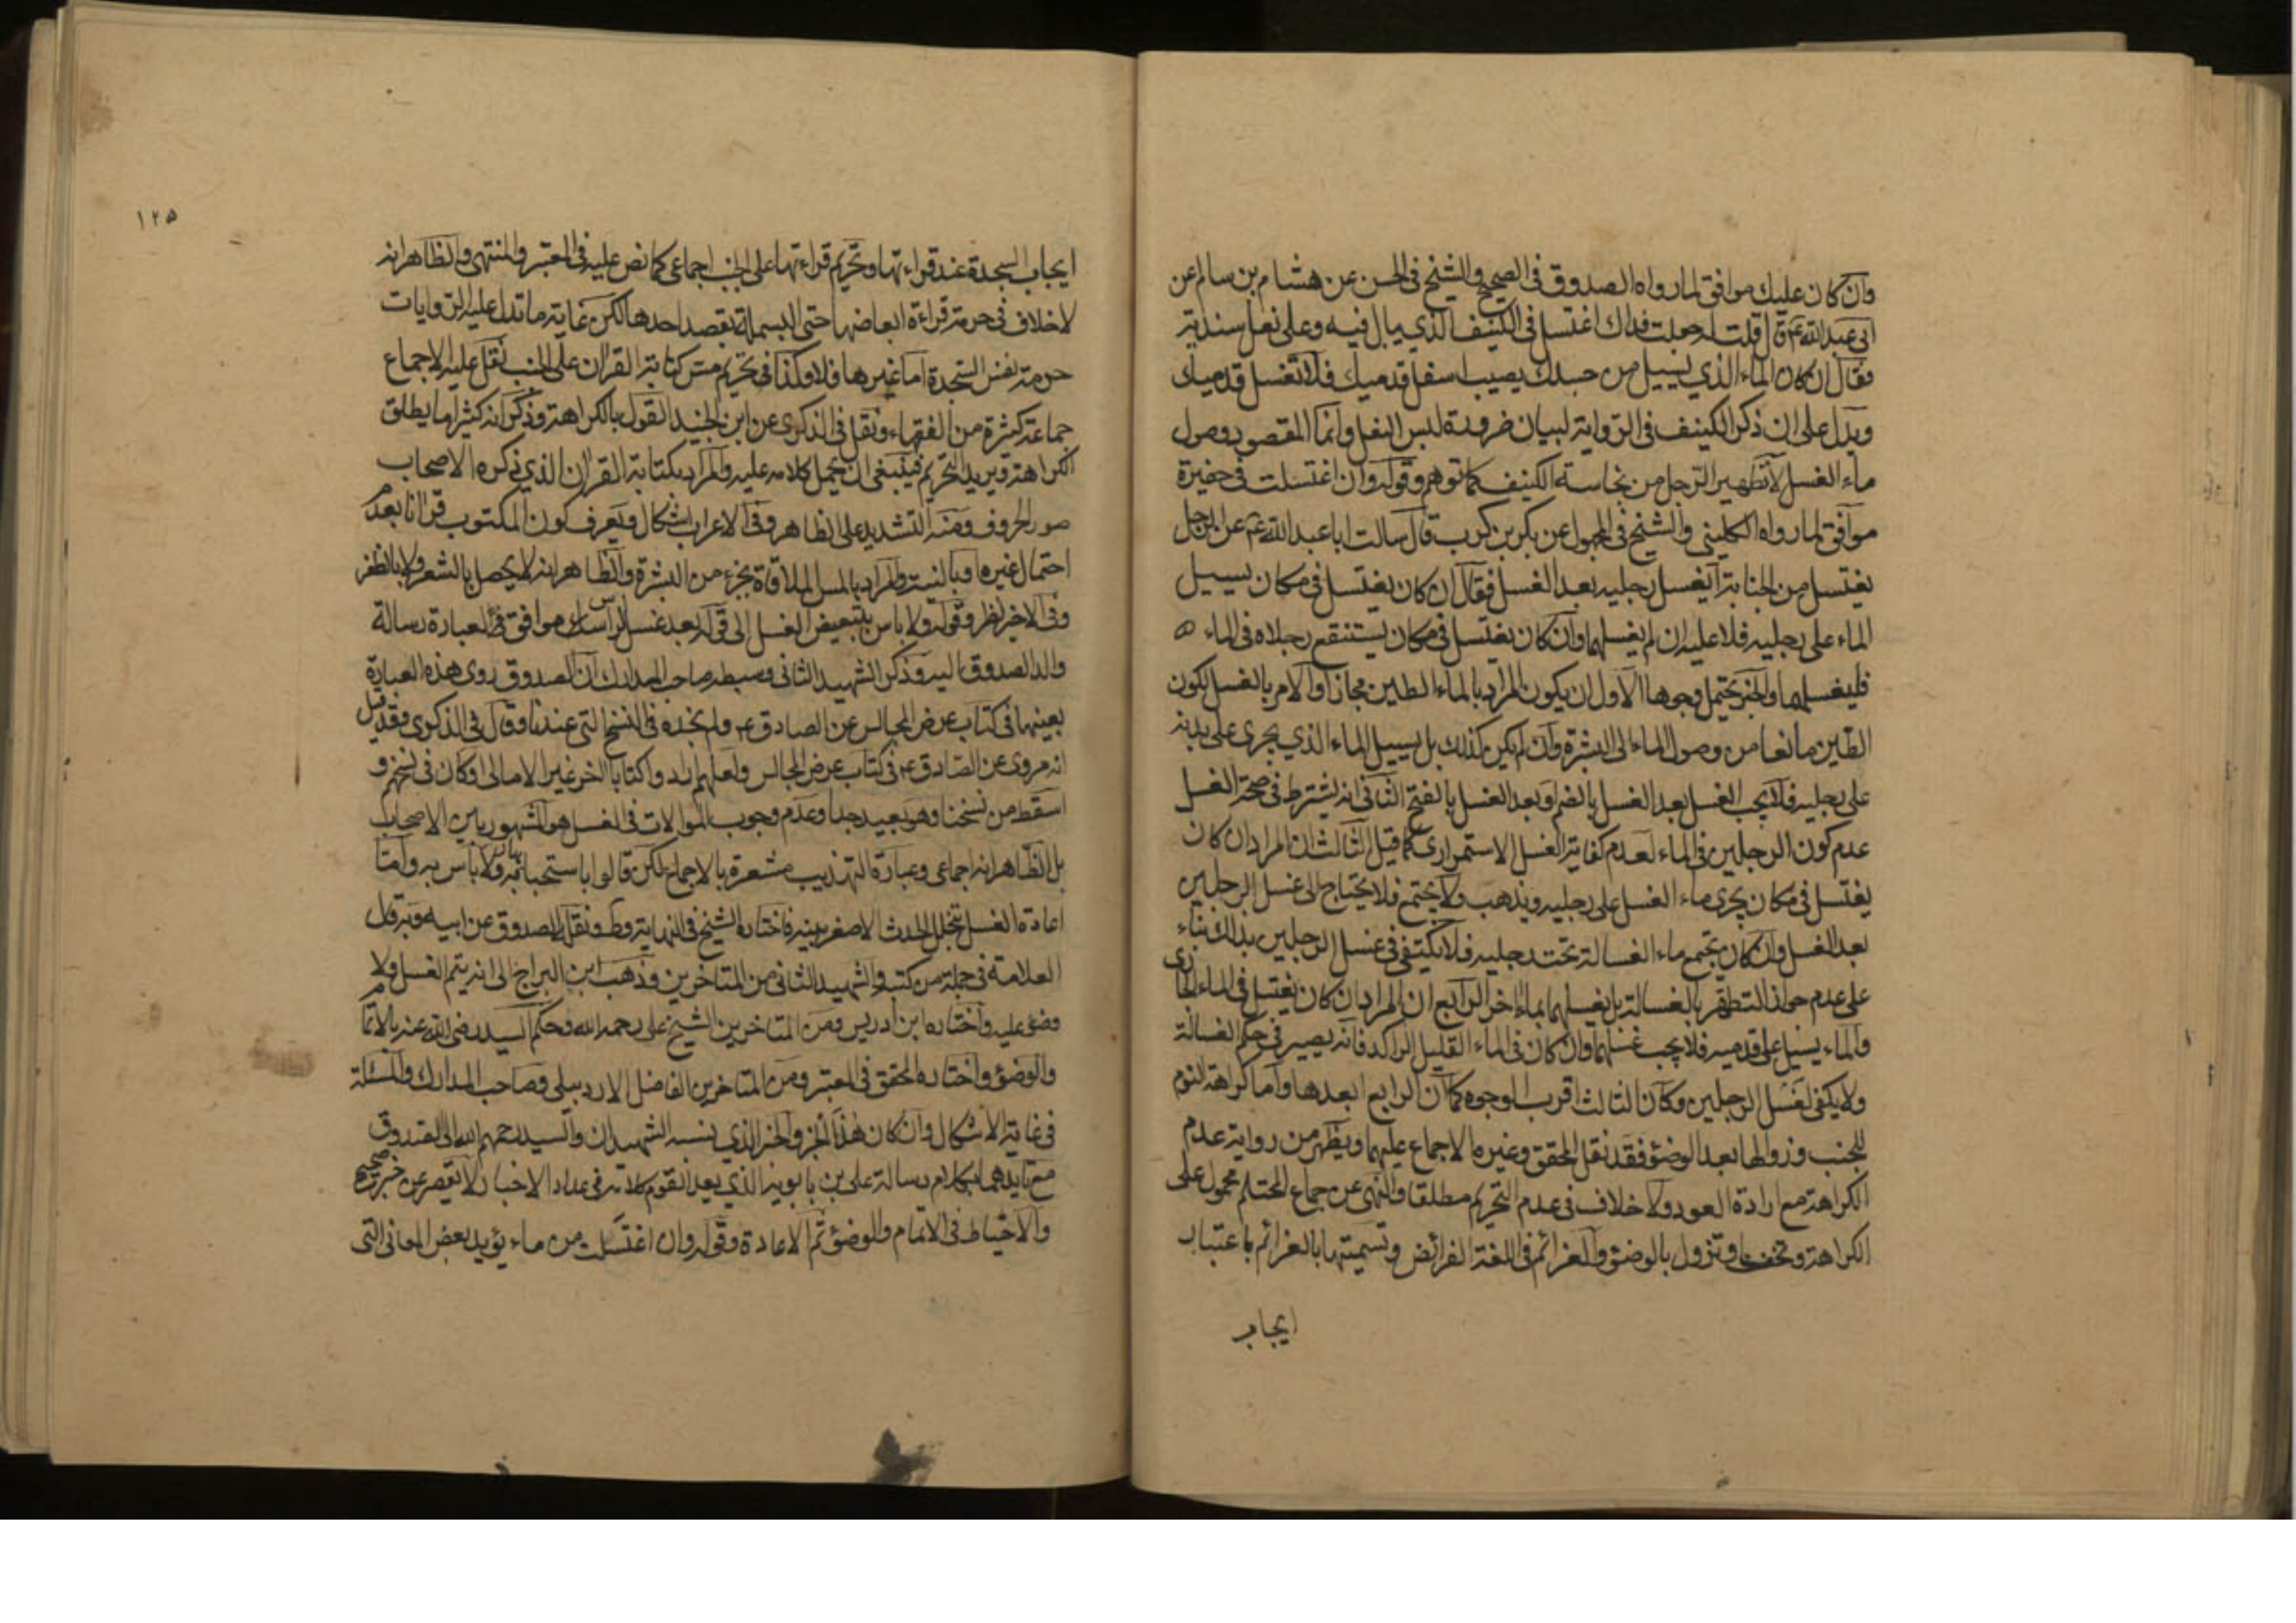 وان كان عليك موافق لما رواه الصدوق في الصحيح والشيخ في الحسن عن هشام بن سالم عن
ابي عبد الله ع قال قلت له جعلت فداك اغتسل في الكنيف الذي يبال فيه وعلى نعل سندية
فقال ان كان الماء الذي يسيل من جسدك يصيب اسفل قدميك فلا تغسل قدميك
ويدل على ان ذكر الكنيف في الرواية لبيان ضرورة لبس النعل وانما المقصود وصول
ماء الغسل لا تطهير الرجل من نجاسة الكنيف كما توهم وقوله وان اغتسلت في حفيرة
موافق لما رواه الكليني والشيخ في المجهول عن بكر بن كرب قال سالت ابا عبد الله ع عن الرجل
يغتسل من الجنابة ايغسل رجليه بعد الغسل فقال ان كان يغتسل في مكان يسيل
الماء على رجليه فلا عليه ان لم يغسلهما وان كان يغتسل في مكان يستنقع رجلاه في الماء
فليغسلهما والخبر يحتمل وجوها الاول ان يكون المراد بالماء الطين مجازا والامر بالغسل لكون
الطين مانعا من وصول الماء الى البشرة وان لم يكن كذلك بل يسيل الماء الذي يجري على بدنه
على رجليه فلا يجب الغسل بعد الغسل بالضم او بعد الغسل بالفتح الثاني انه يشترط في صحة الغسل
عدم كون الرجلين في الماء لعدم كفاية الغسل الاستمراري كما قيل الثالث ان المراد ان كان
يغتسل في مكان يجري ماء الغسل على رجليه ويذهب ولا يجتمع فلا يحتاج الى غسل الرجلين
بعد الغسل وان كان يجتمع ماء الغسالة تحت رجليه فلا يكتفي في غسل الرجلين بذلك بناء
على عدم جواز التطهر بالغسالة بل يغسلهما بماء اخر الرابع ان المراد ان كان يغتسل في الماء الجاري
والماء يسيل على قدميه فلا يجب غسلهما وان كان في الماء القليل الراكد فانه يصير في حكم الغسالة
ولا يكفي لغسل الرجلين وكان الثالث اقرب الوجوه كما ان الرابع ابعدها واما كراهة النوم
للجنب وزوالها بعد الوضؤ فقد نقل المحقق وغيره الاجماع عليهما ويظهر من رواية عدم
الكراهة مع ارادة العود ولا خلاف في عدم التحريم مطلقا والنهي عن جماع المحتلم محمول على
الكراهة وتخف او تزول بالوضؤ والعزائم في اللغة الفرائض وتسميتها بالعزائم باعتبار
ايجاب
١٢٥
ايجاب السجدة عند قراءتها وتحريم قراءتها على الجنب اجماعي كما نص عليه في المعتبر والمنتهى والظاهر انه
لا خلاف في حرمة قراءة ابعاضها حتى البسملة بقصد احدها لكن غاية ما تدل عليه الروايات
حرمة نفس السجدة اما غيرها فلا وكذا في تحريم مس كتابة القران على الجنب نقل عليه الاجماع
جماعة كثيرة من الفقهاء ونقل في الذكرى عن ابن الجنيد القول بالكراهة وذكر انه كثيرا ما يطلق
الكراهة ويريد التحريم فينبغي ان يحمل كلامه عليه والمراد بكتابة القران الذي ذكره الاصحاب
صور الحروف ومنه التشديد على الظاهر وفي الاعراب اشكال ويعرف كون المكتوب قرانا بعدم
احتمال غيره وبالنية والمراد بالمس الملاقاة بجزء من البشرة والظاهر انه لا يحصل بالشعر ولا بالظفر
وفي الاخير نظر وقوله ولا باس بتبعيض الغسل الى قوله بعد غسل الراس موافق في العبارة رسالة
والد الصدوق اليه وذكر الشهيد الثاني وسبطه صاحب المدارك ان الصدوق روى هذه العبارة
بعينها في كتاب عرض المجالس عن الصادق ع ولم نجده في النسخ التي عندنا وقال في الذكرى وقد قيل
انه مروي عن الصادق ع في كتاب عرض المجالس ولعلهم راوا كتابا اخر غير الامالي او كان في نسخهم و
اسقط من نسخنا وهو بعيد جدا وعدم وجوب الموالات في الغسل هو المشهور بين الاصحاب
بل الظاهر انه اجماعي وعبارة التهذيب مشعرة بالاجماع لكن قالوا باستحبابه ولا باس به واما
اعادة الغسل بتخلل الحدث الاصغر بينه فاختاره الشيخ في النهاية وط ونقله الصدوق عن ابيه وبه قال
العلامة في جملة من كتبه والشهيد الثاني من المتاخرين وذهب ابن البراج الى انه يتم الغسل ولا
وضؤ عليه واختاره ابن ادريس ومن المتاخرين الشيخ علي رحمه الله وحكم السيد رضي الله عنه بالاتمام
والوضؤ واختاره المحقق في المعتبر ومن المتاخرين الفاضل الاردبيلي وصاحب المدارك والمسئلة
في غاية الاشكال وان كان هذا الجزء والخبر الذي ينسبه الشهيدان والسيد رحمهم الله الى الصدوق
مع تاييدهما بكلام رسالة علي بن بابويه الذي يعد القوم كلامه في عداد الاخبار لا تقصر عن خبر صحيح
والاحتياط في الاتمام والوضؤ ثم الاعادة وقوله وان اغتسلت من ماء يؤيد بعض المعاني التي